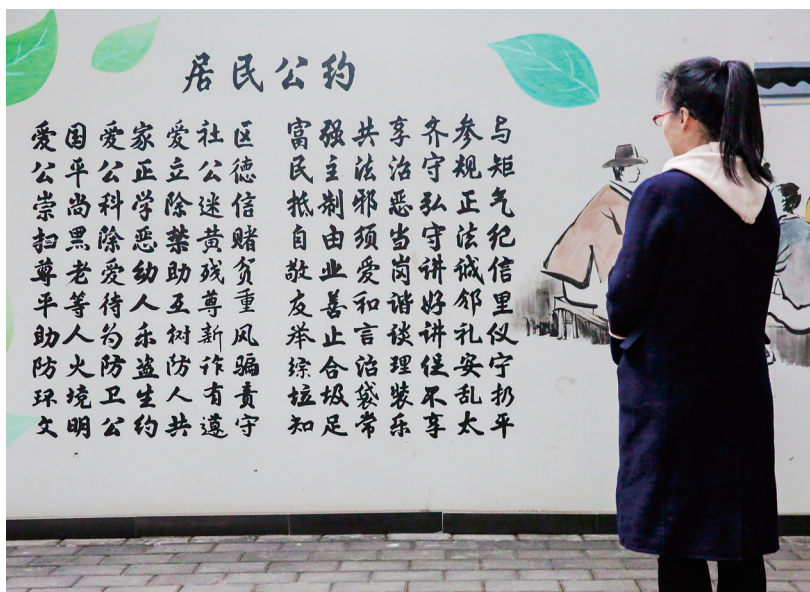 居民公约
爱国爱家爱社区 富强共享齐参与
公平公正立公德 民主法治守规矩
崇尚科学除迷信 抵制邪恶弘正气
扫黑除恶禁黄赌 自由须当守法纪
尊老爱幼助残贫 敬业爱岗讲诚信
平等待人互尊重 友善和谐好邻里
助人为乐树新风 举止言谈讲礼仪
防火防盗防诈骗 综合治理促安宁
环境卫生人有责 垃圾袋装不乱扔
文明公约共遵守 知足常乐享太平